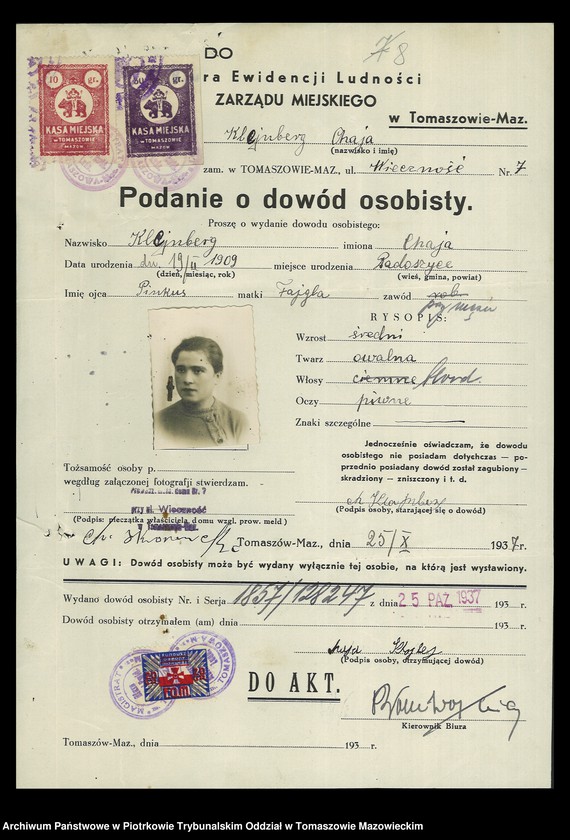 DO
78
ra Ewidencji Ludności
ZARZĄDU MIEJSKIEGO
w Tomaszowie-Maz.
10 gr.
KASA MIEJSKA
w TOMASZOWIE
MAZOW
50 gr.
KASA MIEJSKA
w TOMASZOWIE
MAZOW
Klejnberg Chaja
(nazwisko i imię)
zam. w TOMASZOWIE-MAZ., ul. Wieczność Nr. 7
Podanie o dowód osobisty.
Proszę o wydanie dowodu osobistego:
Nazwisko Klejnberg imiona Chaja
Data urodzenia dn. 19/II 1909 miejsce urodzenia Radoszyce
(dzień, miesiąc, rok) (wieś, gmina, powiat)
Imię ojca Pinkus matki Fajgla zawód rob.
przy mężu
RYSOPIS:
Wzrost średni
Twarz owalna
Włosy ciemne blond.
Oczy piwne
Znaki szczególne
Jednocześnie oświadczam, że dowodu
osobistego nie posiadam dotychczas — po-
przednio posiadany dowód został zagubiony -
skradziony - zniszczony i t. d.
Tożsamość osoby p.
według załączonej fotografji stwierdzam.
domu Nr. 7
przy ul. Wieczność
w Tomaszowie-Maz.
(Podpis: pieczątka właściciela domu wzgl. prow. meld)
(Podpis osoby, starającej się o dowód)
Tomaszów-Maz., dnia 25/X 1937 r.
UWAGI: Dowód osobisty może być wydany wyłącznie tej osobie, na którą jest wystawiony.
Wydano dowód osobisty Nr. i Serja 1857/128247 z dnia 25 PAŹ. 1937 193 r.
Dowód osobisty otrzymałem (am) dnia 193 r.
(Podpis osoby, otrzymującej dowód)
MAGISTRAT
TOMASZOWA MAZ
DO AKT.
Kierownik Biura
Tomaszów-Maz., dnia 193 r.
Archiwum Państwowe w Piotrkowie Trybunalskim Oddział w Tomaszowie Mazowieckim